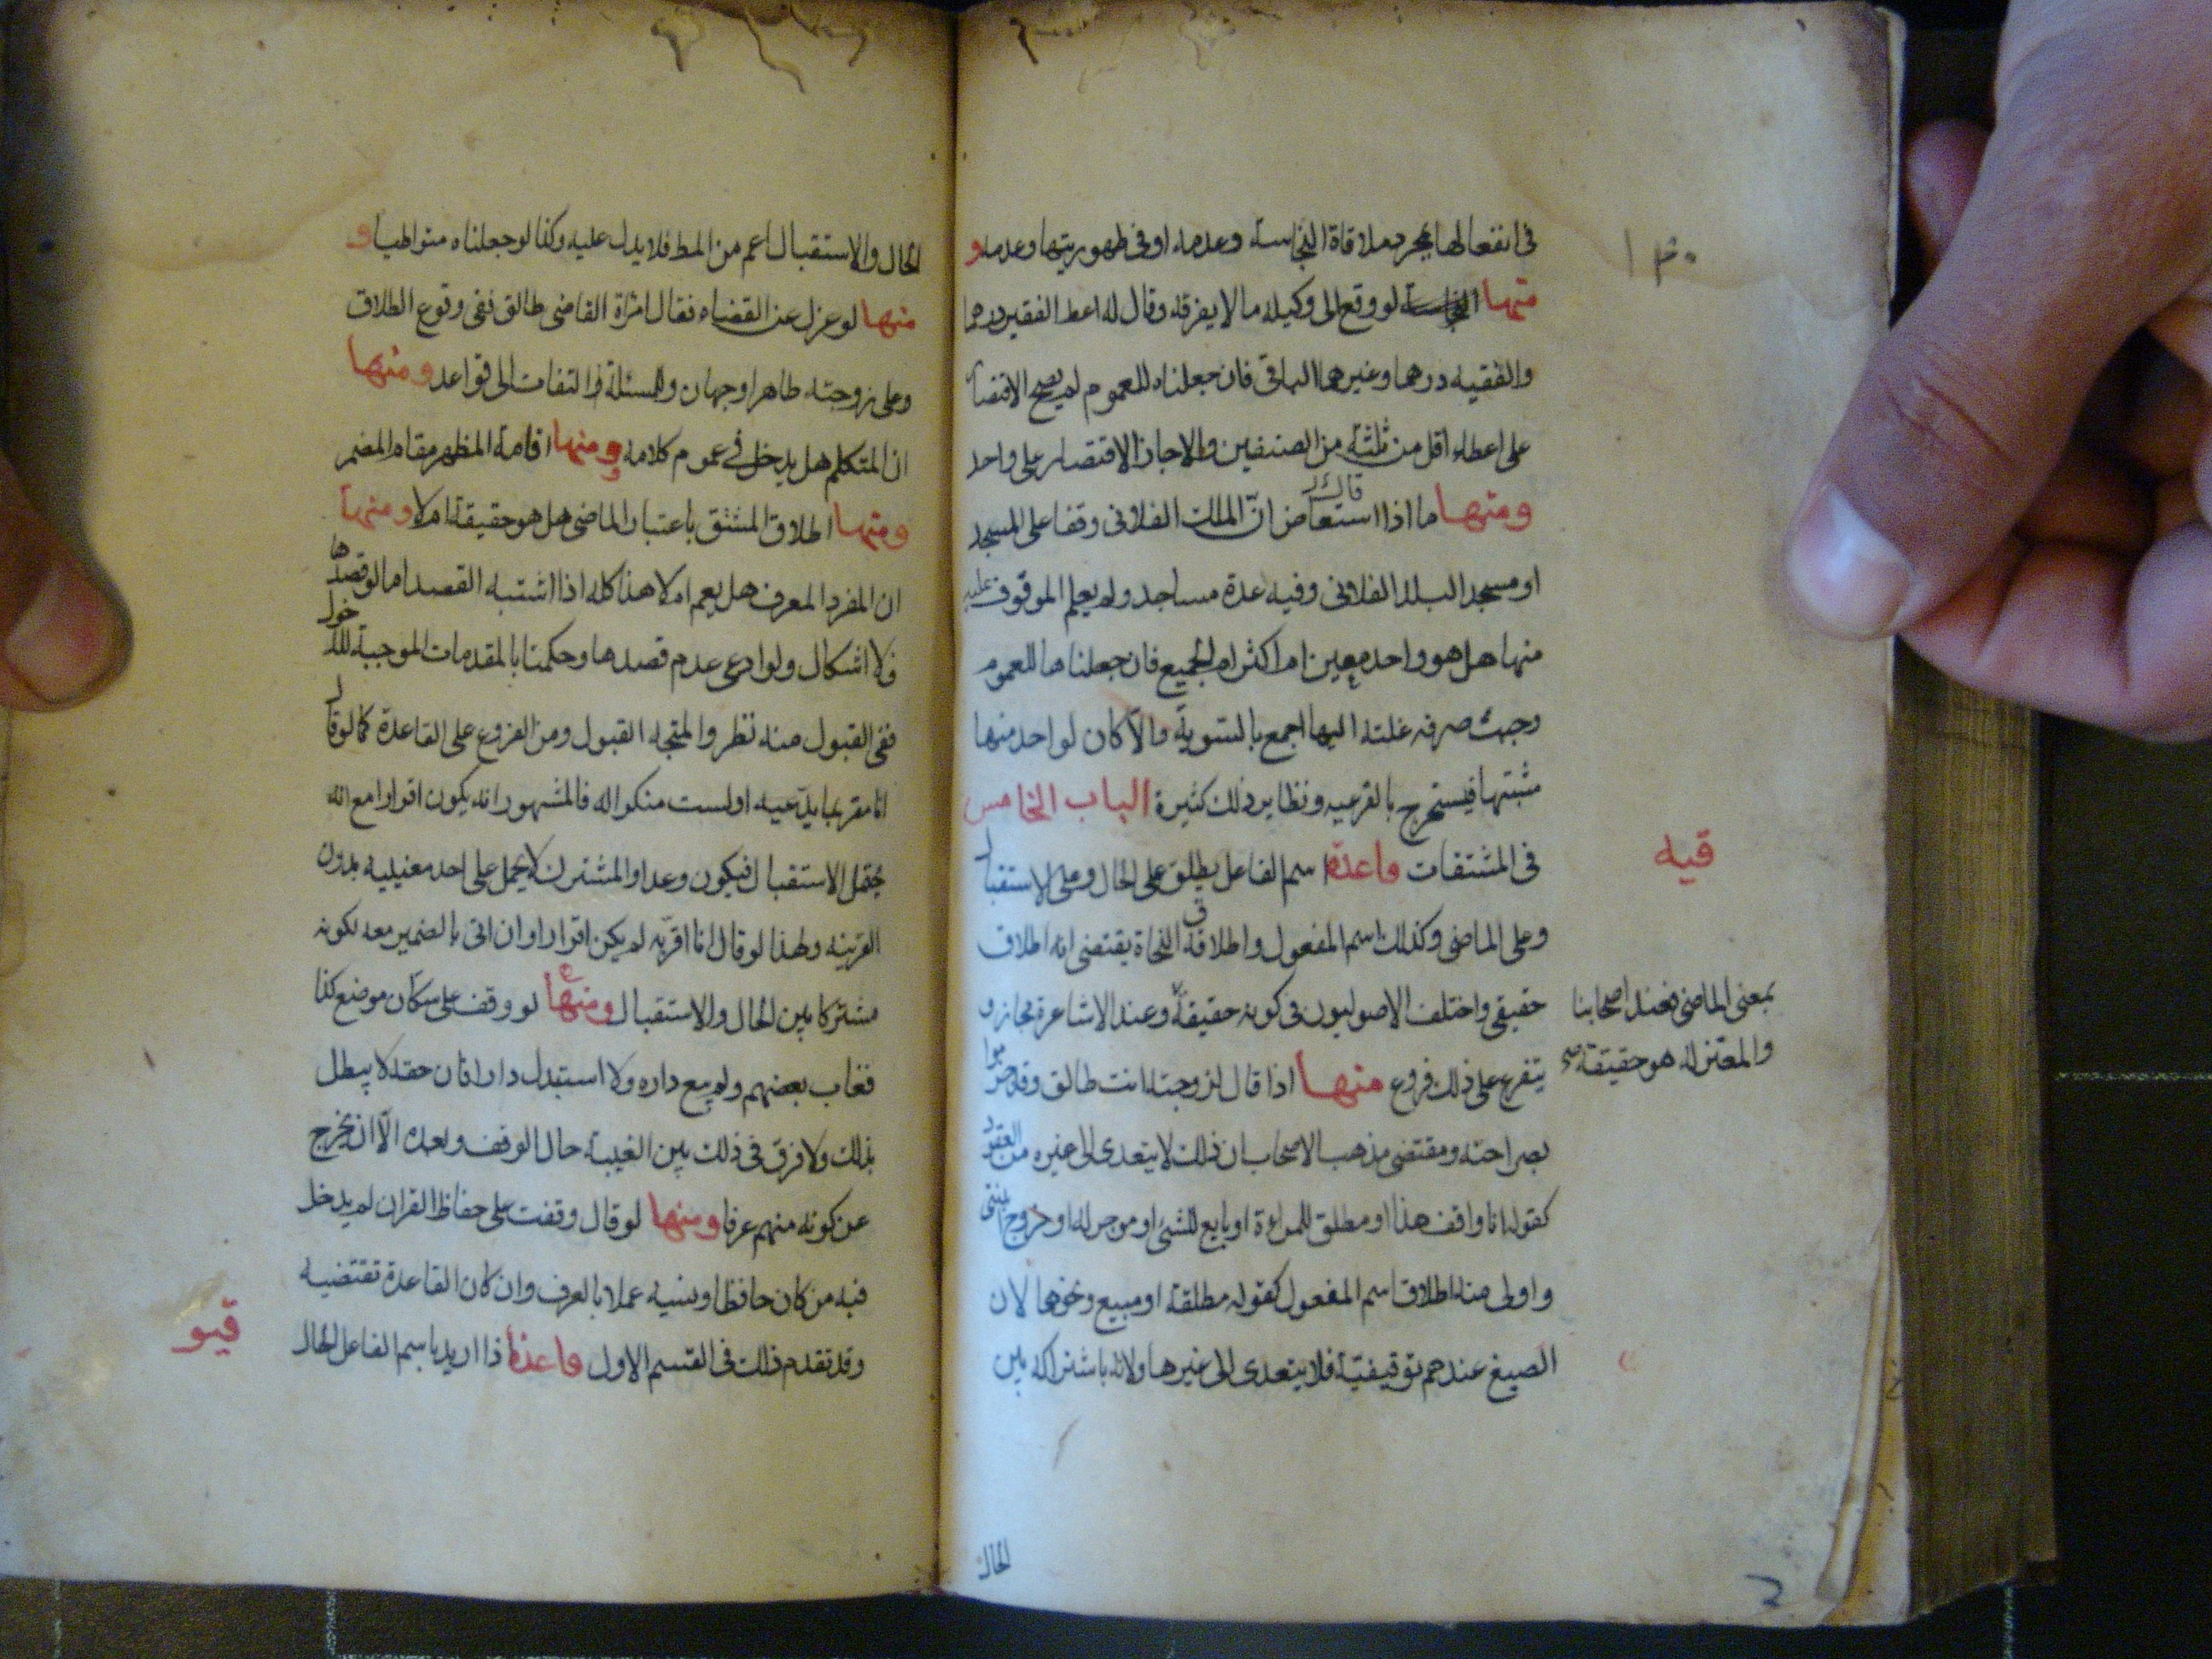 ١٣٠
فى انفعالها بمجرد ملاقاة النجاسة وعدمه او فى طهوريتها وعدمه و
منها لو وقع الى وكيله مالا يفرقه وقال له اعط الفقير درهما
والفقيه درهما وغيرهما الباقى فان جعلناه للعموم لم يصح الاقتصا
على اعطاء اقل من ثلثة من الصنفين والا جاز الاقتصار على واحد
ومنها ما اذا استفاض ان الملك الفلانى وقفا على المسجد
او مسجد البلد الفلانى وفيه عدة مساجد ولم يعلم الموقوف عليه
منها هل هو واحد معين ام اكثر ام الجميع فان جعلناها للعموم
وجبت صرف غلته اليها اجمع بالتسوية والا كان لواحد منها
مثبتها فيستخرج بالقرعيه ونظاير ذلك كثيرة الباب الخامس
فى المشتقات قاعدة اسم الفاعل يطلق على الحال وعلى الاستقبال
قيه
وعلى الماضى وكذلك اسم المفعول واطلاق النحاة يقتضى انه اطلاق
حقيقى واختلف الاصوليون فى كونه حقيقة وعند الاشاعرة مجاز و
بمعنى الماضى فعند اصحابنا
والمعتزلة هو حقيقة صح
يتفرع على ذلك فروع منها اذا قال لزوجته انت طالق وقد صرحوا
بصراحته ومقتضى مذهب الاصحاب ان ذلك لا يتعدى الى غيره من العقود
كقوله انا واقف هذا او مطلق للمراءة او بايع للشئ او موجر له او مزوج بنتى
واولى منه اطلاق اسم المفعول كقوله مطلقة او مبيع ونحوهما لان
الصيغ عندهم توقيفية فلا يتعدى الى غيرها ولانه باشتراكه بين
الحال
الحال والاستقبال اعم من المط فلا يدل عليه وكذا لو جعلناه متواطيا و
منها لو عزل عن القضاء فقال امراة القاضى طالق ففى وقوع الطلاق
وعلى زوجته ظاهرا وجهان وللمسئلة التفات الى قواعد ومنها
ان المتكلم هل يدخل فى عموم كلامه ومنها اقامة المظهر مقام المضمر
ومنها اطلاق المشتق باعتبار الماضى هل هو حقيقة ام لا ومنها
ان المفرد المعرف هل يعم ام لا هذا كله اذا اشتبه القصد اما لو قصدها
فلا اشكال ولو ادعى عدم قصدها وحكمنا بالمقدمات الموجبة للدخول
ففى القبول منه نظر والمتجه القبول ومن الفروع على القاعدة كما لو قال
انا مقر بما يدعيه او لست منكرا له فالمشهور انه يكون اقرارا مع انه
يحتمل الاستقبال فيكون وعدا والمشترك لا يحمل على احد معنييه بدون
القرينه ولهذا لو قال انا اقر به لم يكن اقرارا وان اتى بالضمير معه لكونه
مشتركا بين الحال والاستقبال ومنها لو وقف على سكان موضع كذا
فغاب بعضهم ولم يبع داره ولا استبدل دارا فان حقه لا يبطل
بذلك ولا فرق فى ذلك بين الغيبة حال الوقف وبعده الا ان يخرج
عن كونه منهم عرفا ومنها لو قال وقفت على حفاظ القران لم يدخل
فيه من كان حافظا ونسيه عملا بالعرف وان كان القاعدة تقتضيه
وقد تقدم ذلك فى القسم الاول قاعدة اذا اريد باسم الفاعل الحال
قيو